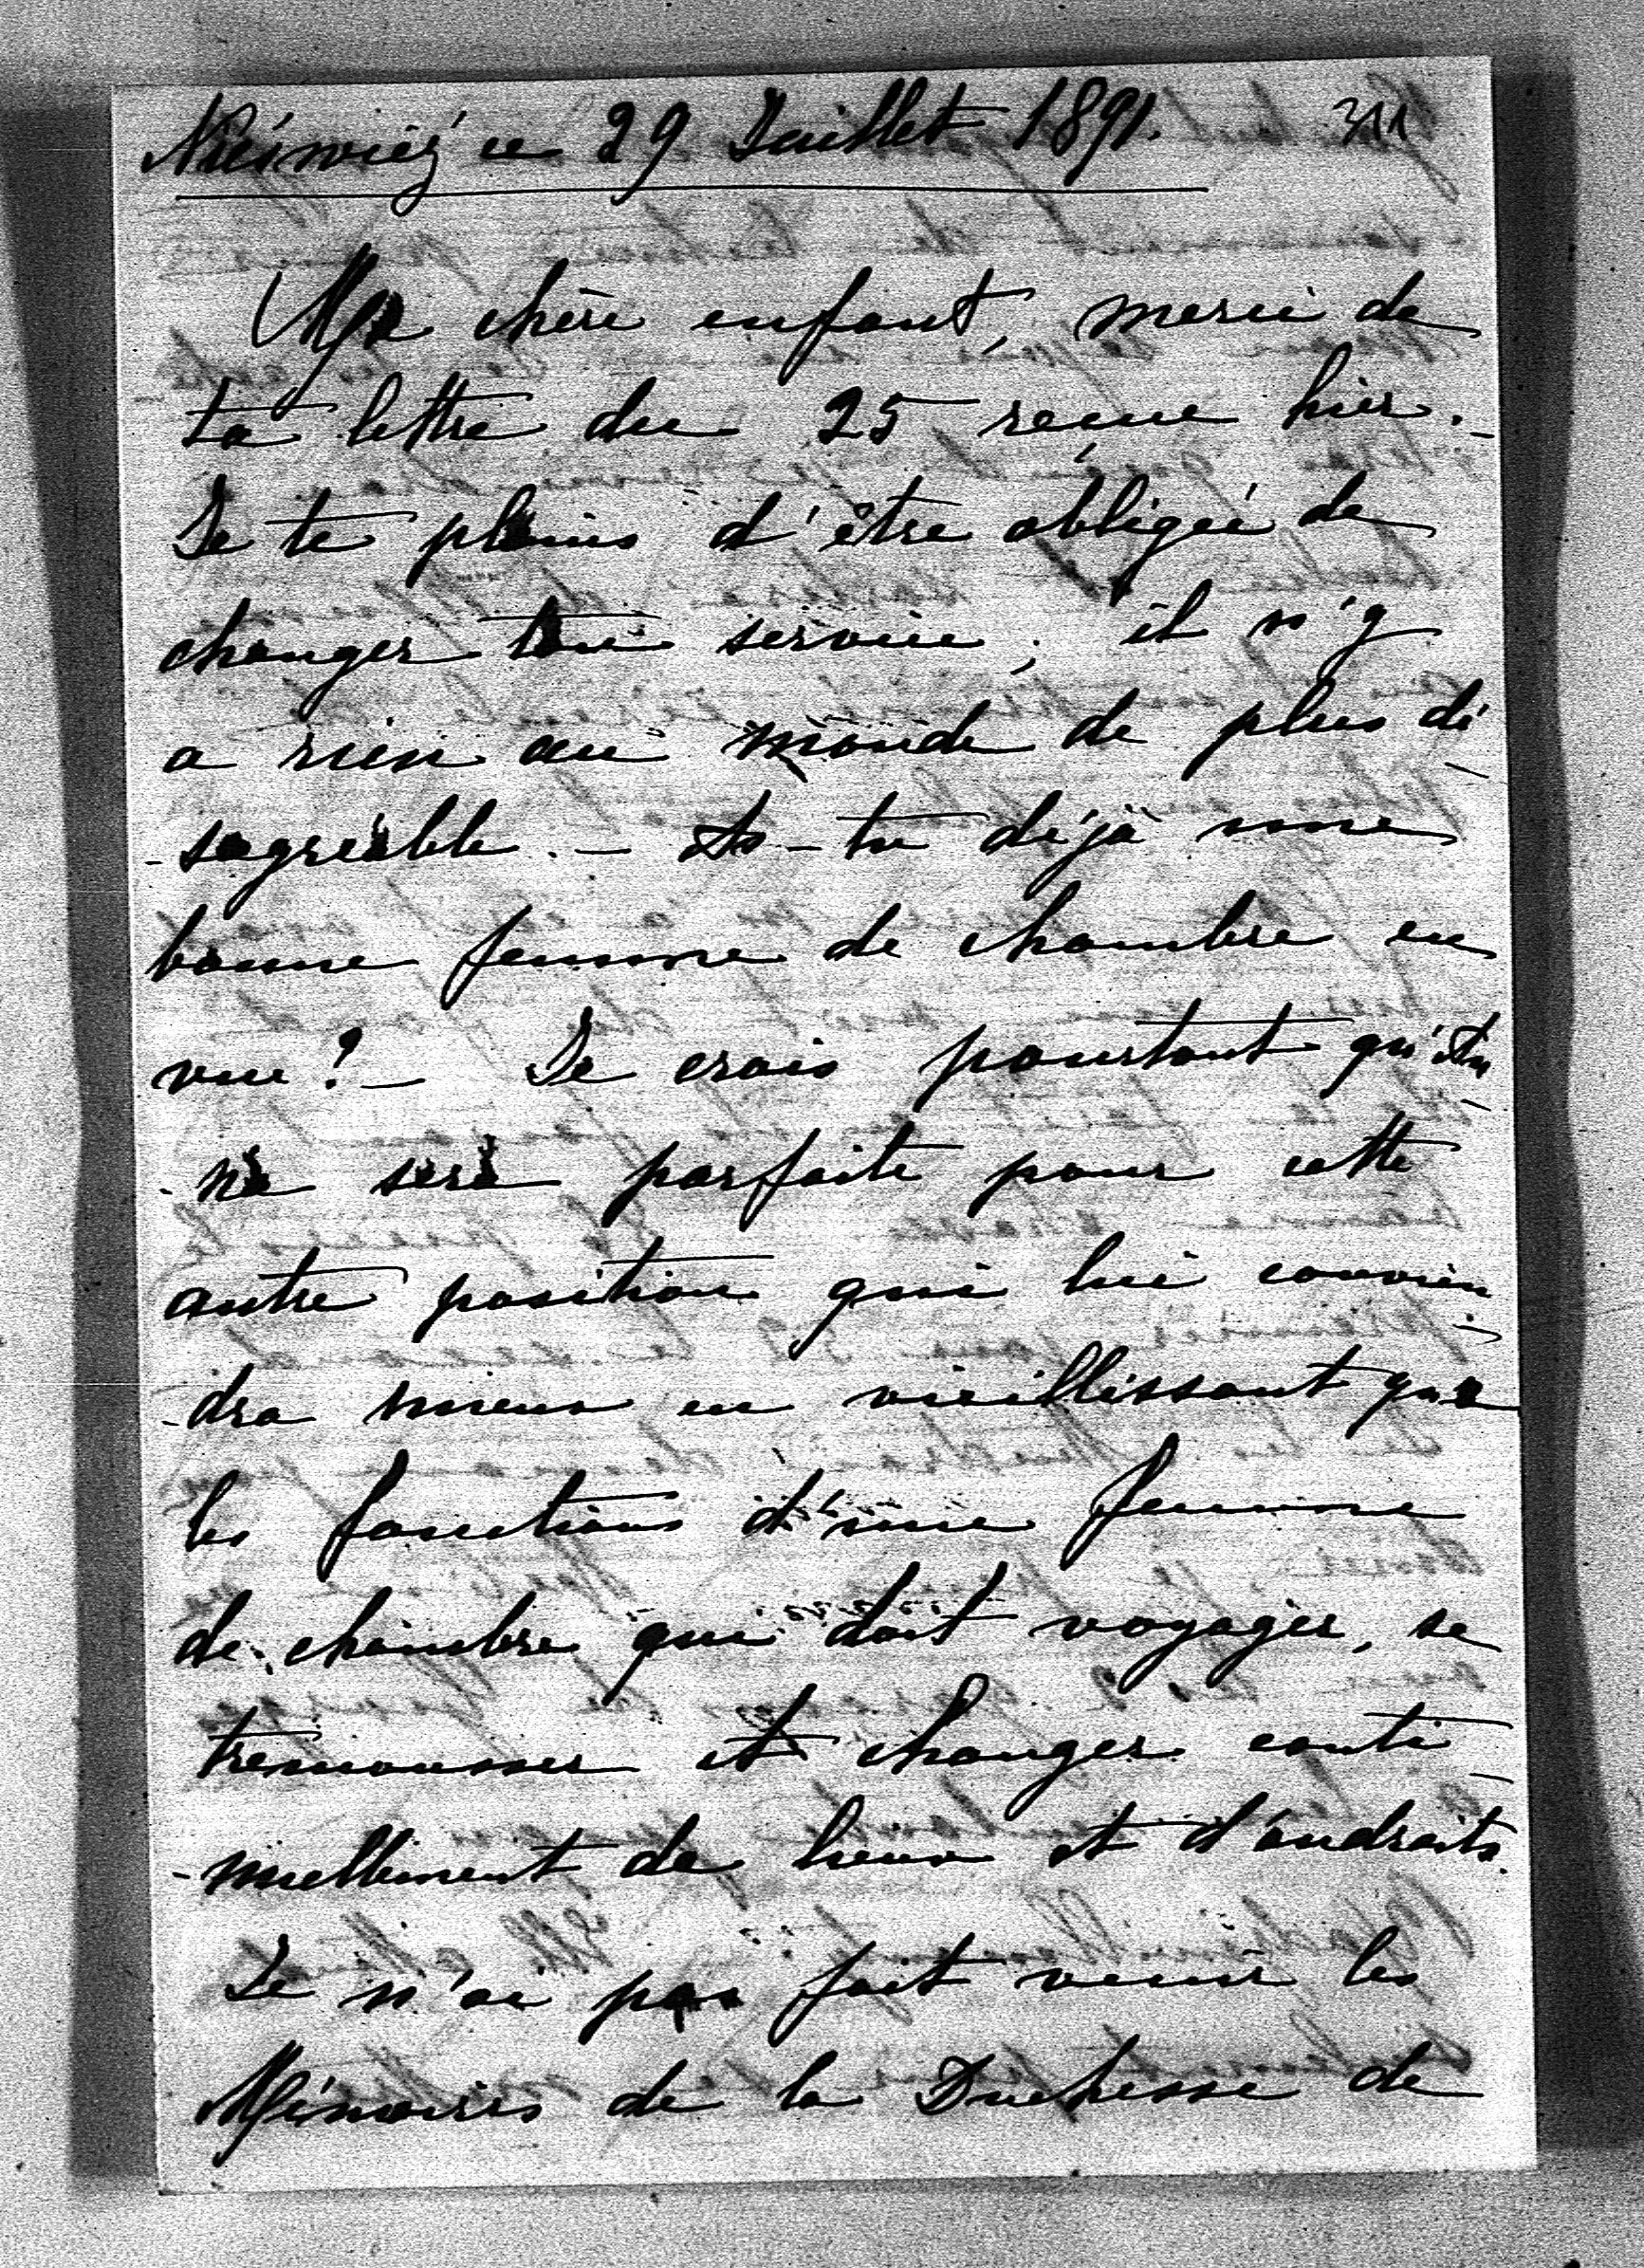 Nieśwież ce 29 Juillet 1891. 311
Ma chère enfant, merci de
ta lettre du 25 reçue hier. -
Je te plains d'être obligée de
changer ton service ; il n'y
a rien au monde de plus dé
- sagréable. - As-tu déjà une
bonne femme de chambre en
vue ? - Je crois pourtant qu'An
- na sera parfaite pour cette
autre position qui lui convien
- dra mieux en vieillissant que
les fonctions d'une femme
de chambre qui doit voyager, se
tremousser et changer conti
- nuellement de lieux et d'endroits.
Je n'ai pas fait venir les
Mémoires de la Duchesse de